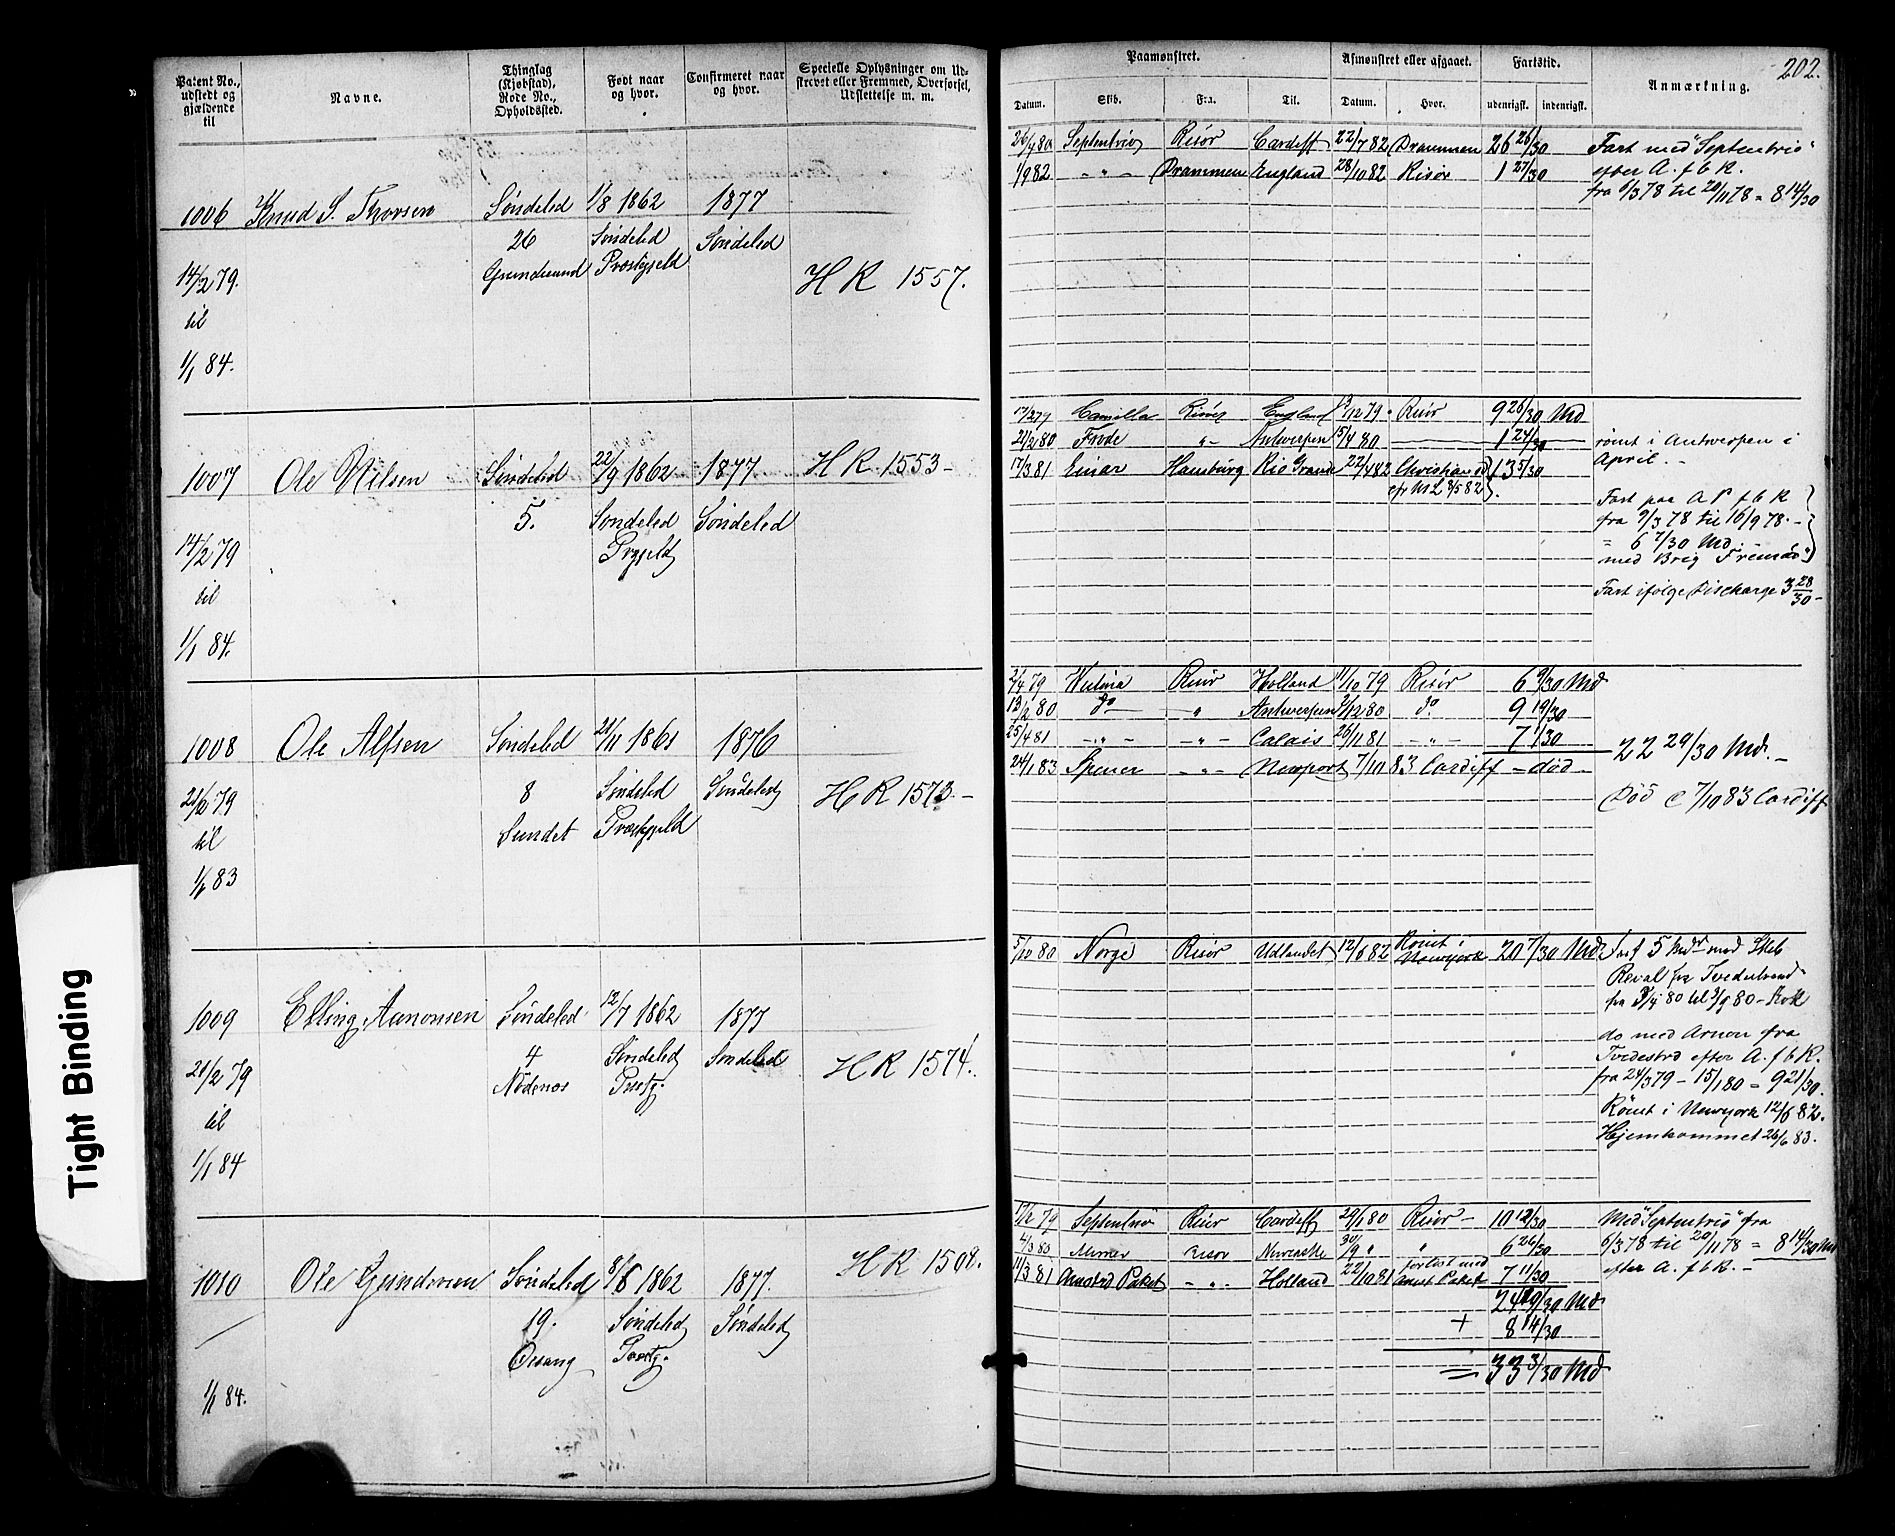 202.
Patent No., udstedt og gjældende til
Navne.
Thinglag (Kjøbstad), Rode No., Opholdssted.
Født naar og hvor.
Confirmeret naar og hvor.
Specielle Oplysninger om Udskrevet eller Fremmed, Overførsel, Udslettelse m. m.
Paamønstret.
Afmønstret eller afgaaet.
Fartstid.
Anmærkning.
Datum. Skib. Fra. Til. Datum. Hvor. udenrigsk. indenrigsk.
1006 Knud S. Thorsen Søndeled 1/8 1862 1877
26 Søndeled Søndeled
Præstgjeld
H R 1557.
14/2 79.
til
1/1 84.
Septentrio Risør Cardiff 22/7 82 Drammen 26 26/30
1/9 82 - " - Drammen England 28/10 82 Risør 1 27/30
Fart med "Septentrio"
efter A. f b R.
fra 6/3 78 til 20/11 78 = 8 14/30
1007 Ole Nilsen Søndeled 22/9 1862 1877 H R. 1553 -
5. Søndeled Søndeled
14/2 79
til
1/1 84.
17/2 79 Camilla Risør England /12 79 Risør 9 26/30 Md
21/2 80 Frode " Antwerpen 15/4 80 1 24/30
17/3 81 Einar Hamburg Rio Grande 22/4 82 13 5/30
rømt i Antwerpen i
April. -
Fart paa A P f b R
fra 9/3 78 til 16/9 78. -
= 6 7/30 Md.
med Brig
Fart ifølge Discharge 3 28/30 -
1008 Ole Alfsen Søndeled 21/11 1861 1876
8 Søndeled Søndeled
Sundet Præstgjeld
H R 1573. -
21/2 79
til
1/1 83
2/4 79 Risør Holland 11/10 79 Risør 6 9/30 Md
13/2 80 do " Antwerpen /12 80 do 9 19/30
25/4 81 - " - - " - Calais 26/11 81 - " - 7 1/30
24/1 83 - " - Newport 7/10 83 Cardiff - død
22 29/30 Md. -
Død 7/10 83 Cardiff
1009 Elling Aanonsen Søndeled 12/7 1862 1877
4 Søndeled Søndeled
H R 1574.
21/2 79
til
1/1 84
5/10 80 Norge Risør Udlandet 12/6 82 Rømt i Newyork 20 7/30 Md
Fart 5 Mdr med Skib
Reval fra Tvedestrand
do med Arnon fra
Tvedestrd efter A. f b R.
fra 24/3 79 - 15/1 80 = 9 21/30.
Rømt i Newyork 12/6 82.
Hjemkommet 26/6 83.
1010 Ole Gundersen Søndeled 8/8 1862 1877.
19. Søndeled Søndeled
H R 1508.
1/1 84.
17/2 79 Septentrio Risør Cardiff 29/1 80 Risør - 10 12/30
4/3 80 Mimer Risør Newcastle 30/9 " " 6 26/30
11/3 81 Arnstrd Paket - " - Holland 22/10 81 forlist med Arnst Paket 7 11/30
24 19/30 Md
+ 8 14/30
= 33 3/30 Md
Med "Septentrio" fra
6/3 78 til 20/11 78 = 8 14/30 Md
efter A. f b R. -
Tight Binding